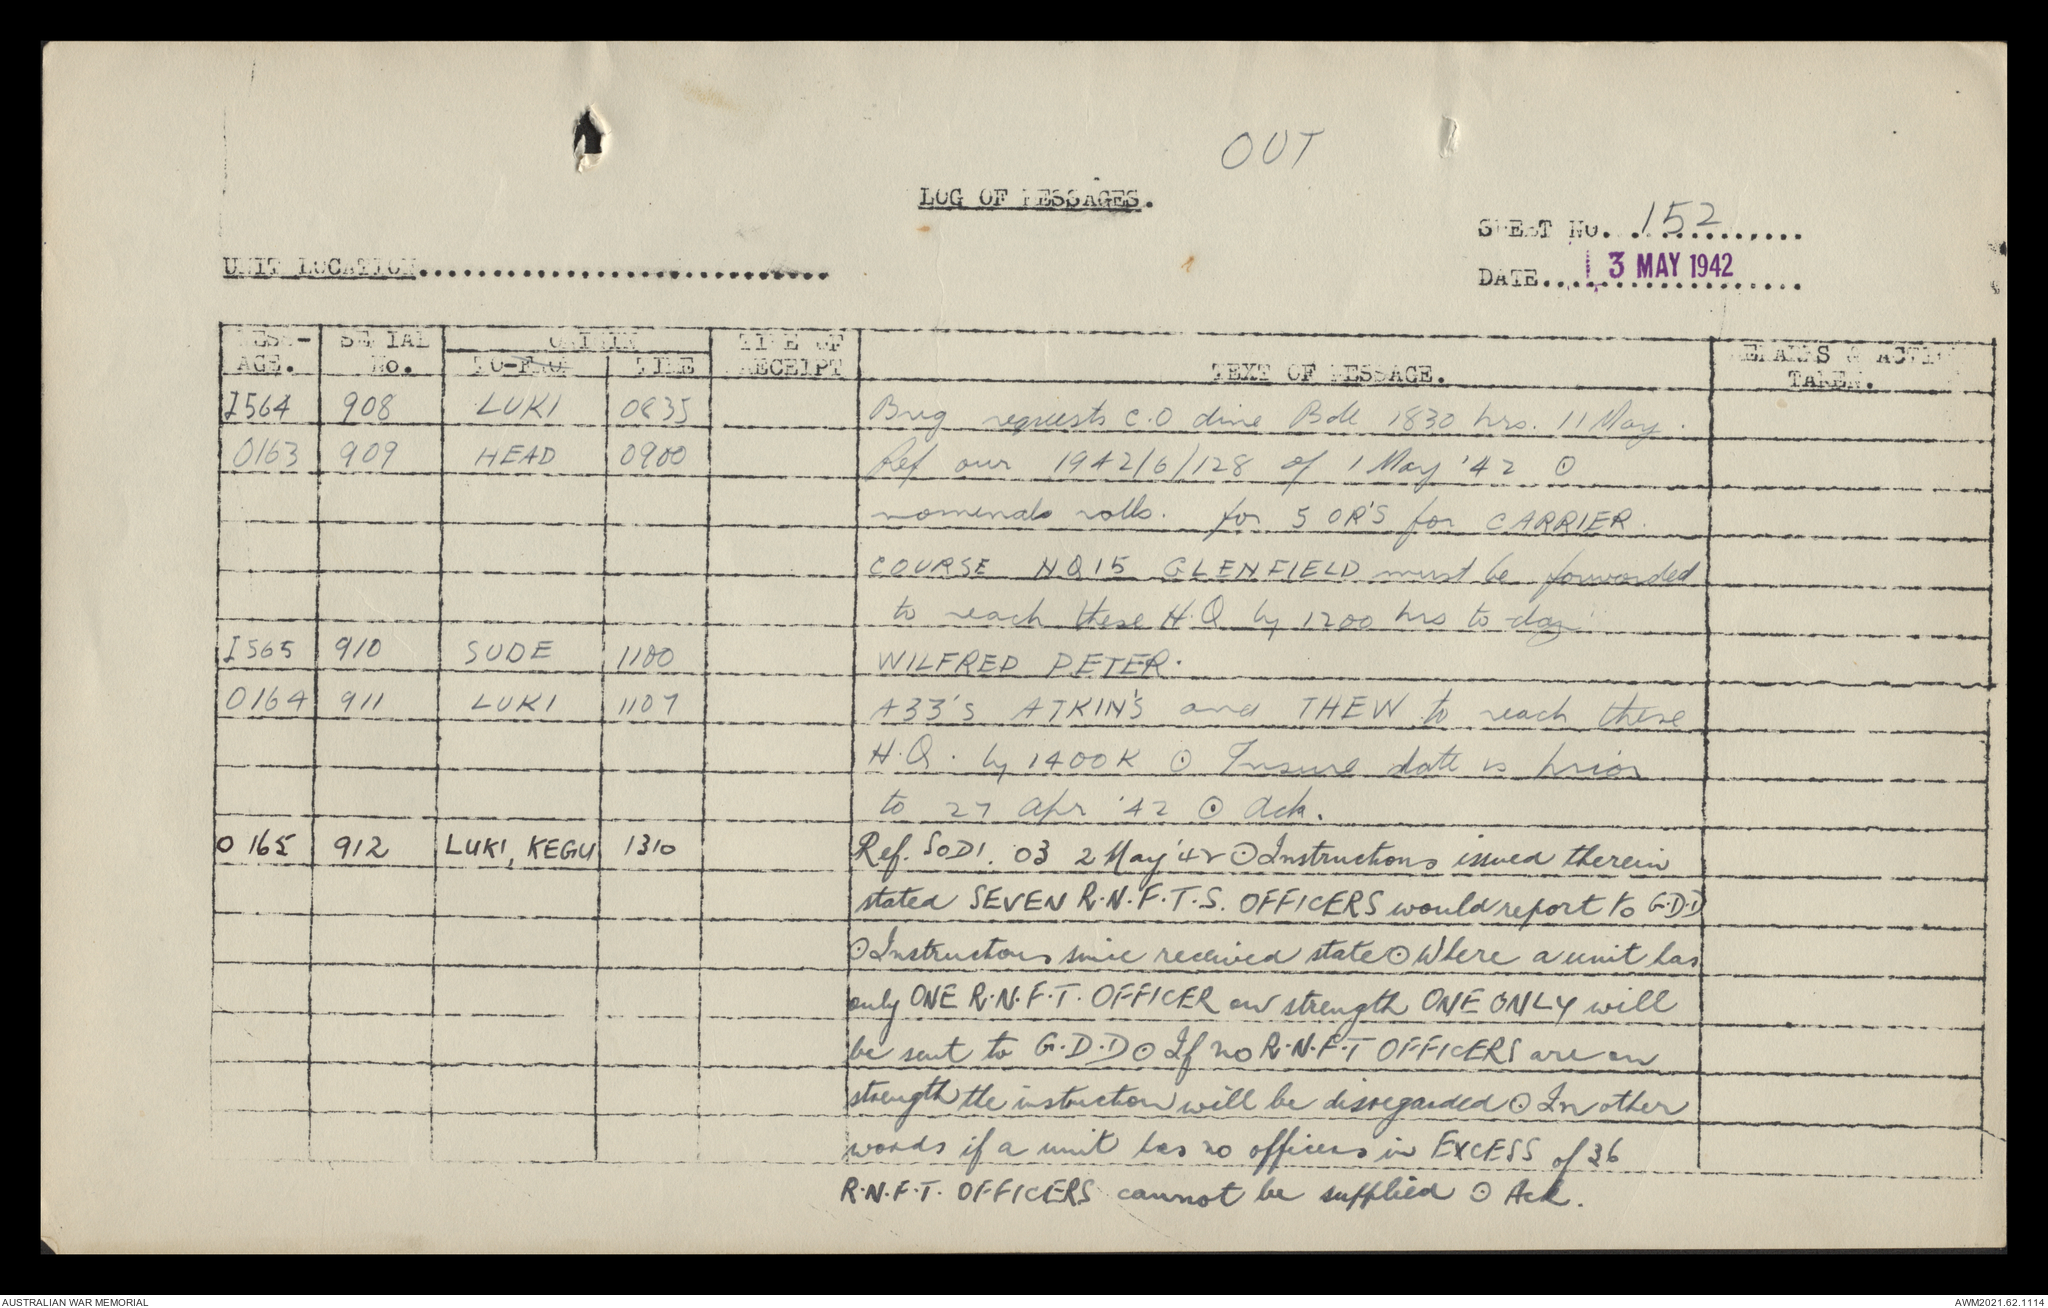 OUT
LOG OF MESSAGES.
SHEET NO. 152
UNIT LOCATION
DATE 3 MAY 1942
MESS- SERIAL ORIGIN TIME OF
AGE. No. TO-FROM TIME RECEIPT TEXT OF MESSAGE. REMARKS & ACTION TAKEN.
I564 908 LUKI 0835 Brig requests C.O dine Bde 1830 hrs. 11 May.
O163 909 HEAD 0900 Ref our 1942/6/128 of 1 May '42 ⊙
nominals rolls. for 5 OR'S for CARRIER.
COURSE NO 15 GLENFIELD must be forwarded
to reach these H.Q by 1200 hrs to day
I565 910 SUDE 1100 WILFRED PETER.
O164 911 LUKI 1107 A33's ATKIN'S and THEW to reach these
H.Q. by 1400K ⊙ Insure date is prior
to 27 Apr '42 ⊙ Ack.
O 165 912 LUKI, KEGU 1310 Ref. SOD1. 03 2 May '42 ⊙ Instructions issued therein
stated SEVEN R.N.F.T.S. OFFICERS would report to G.D.D
⊙ Instructions since received state ⊙ Where a unit has
only ONE R.N.F.T. OFFICER on strength ONE ONLY will
be sent to G.D.D ⊙ If no R.N.F.T OFFICERS are on
strength the instruction will be disregarded ⊙ In other
words if a unit has no officers in EXCESS of 36
R.N.F.T. OFFICERS cannot be supplied ⊙ Ack.
AUSTRALIAN WAR MEMORIAL
AWM2021.62.1114